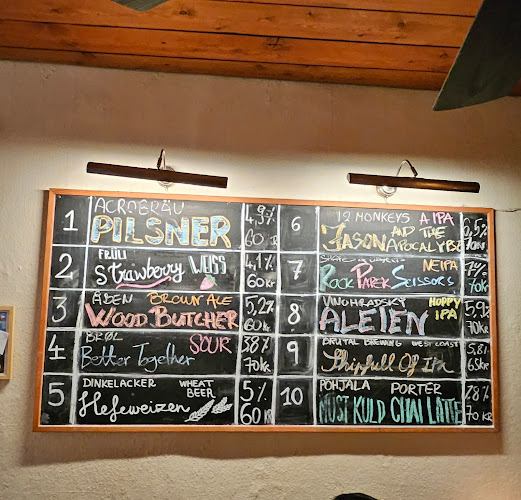 1 ACROBRÄU PILSNER 4,9% 60 kr
2 FRÜLI Strawberry WEISS 4,1% 60kr
3 ÅBEN BROWN ALE WOOD BUTCHER 5,2% 60kr
4 BRØL SOUR Better Together 3,8% 70kr
5 DINKELACKER WHEAT BEER Hefeweizen 5% 60 KR
6 12 MONKEYS A IPA JASON AND THE APOCALYPSE 6,5%
7 NEIPA ROCK PAPER SCISSORS 70kr
8 VINOHRADSKY HOPPY IPA ALEIEN 5,9% 70kr
9 BRUTAL BREWING WEST COAST Shipfull Of IPA 5,8% 65kr
10 POHJALA PORTER MUST KULD CHAI LATTE 7,8% 70 KR